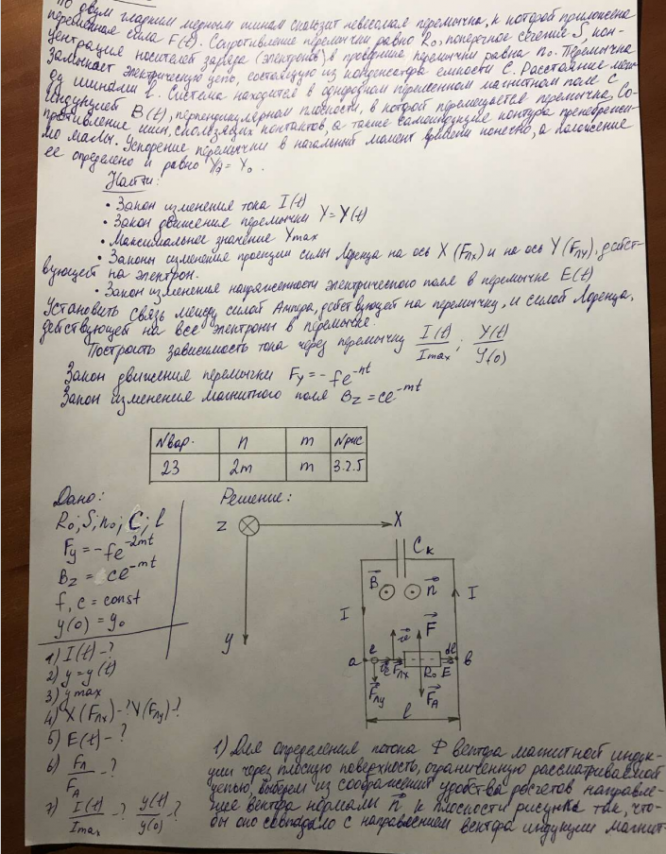 По двум гладким медным шинам скользит невесомая перемычка, к которой приложена
переменная сила F(t). Сопротивление перемычки равно R₀, поперечное сечение S, кон-
центрация носителей заряда (электронов) в проводнике перемычки равна n₀. Перемычка
замыкает электрическую цепь, состоящую из конденсатора емкости C. Расстояние меж-
ду шинами l. Система находится в однородном переменном магнитном поле с
индукцией B(t), перпендикулярном плоскости, в которой перемещается перемычка. Со-
противление шин, скользящих контактов, а также самоиндукция контура пренебрежи-
мо малы. Ускорение перемычки в начальный момент времени конечно, а положение
ее определено и равно
Найти:
• Закон изменения тока I(t)
• Закон движения перемычки Y=Y(t)
• Максимальное значение Ymax
• Законы изменения проекции силы Лоренца на ось X (Fлx) и на ось Y (Fлy), дейст-
вующей на электрон.
• Закон изменения напряженности электрического поля в перемычке E(t)
Установить связь между силой Ампера, действующей на перемычку, и силой Лоренца,
действующей на все электроны в перемычке.
Построить зависимость тока через перемычку I(t)/Imax ; Y(t)/Y(0)
Закон движения перемычки Fy=-fe^-nt
Закон изменения магнитного поля Bz=ce^-mt
Nвар. n m Nрис
23 2m m 3.2.5
Дано: Решение:
R₀; S; n₀; C; l
Fy=-fe^-2mt
Bz= ce^-mt
f, c = const
y(0)=y₀
1) I(t)-?
2) y=y(t)
3) ymax
4) X(Fлx)-? Y(Fлy)-?
5) E(t)-?
6) Fл/FА -?
7) I(t)/Imax -? y(t)/y(0) -?
z X
y
Cк
B n
I I
F
a e Fлx R₀ E dl b
Fлy FА
l
1) Для определения потока Ф вектора магнитной индук-
ции через плоскую поверхность, ограниченную рассматриваемой
цепью, выберем из соображений удобства расчетов направле-
ние вектора нормали n к плоскости рисунка так, что-
бы оно совпадало с направлением вектора индукции магнит-